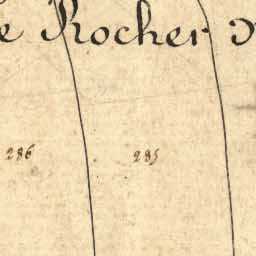 e Rocher
286 285